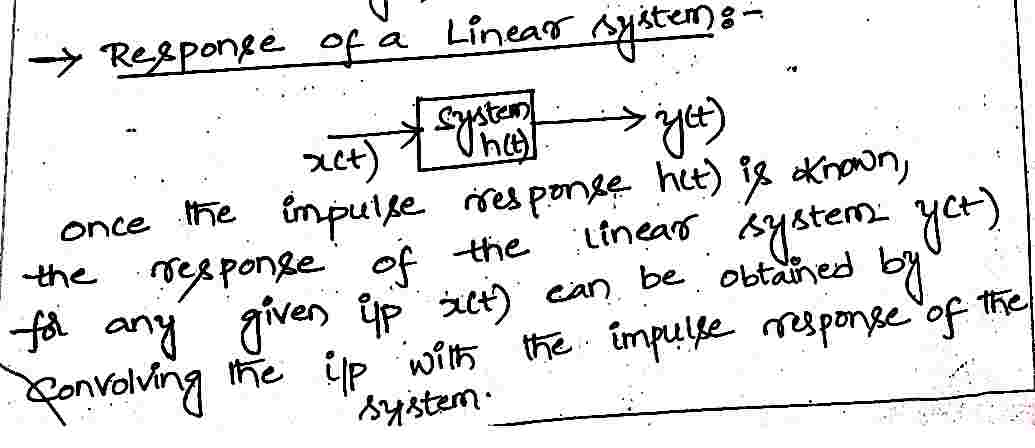 → Response of a Linear system:-
x(t) → System h(t) → y(t)
once the impulse response h(t) is known,
the response of the Linear system y(t)
for any given i/p x(t) can be obtained by
Convolving the i/p with the impulse response of the
system.